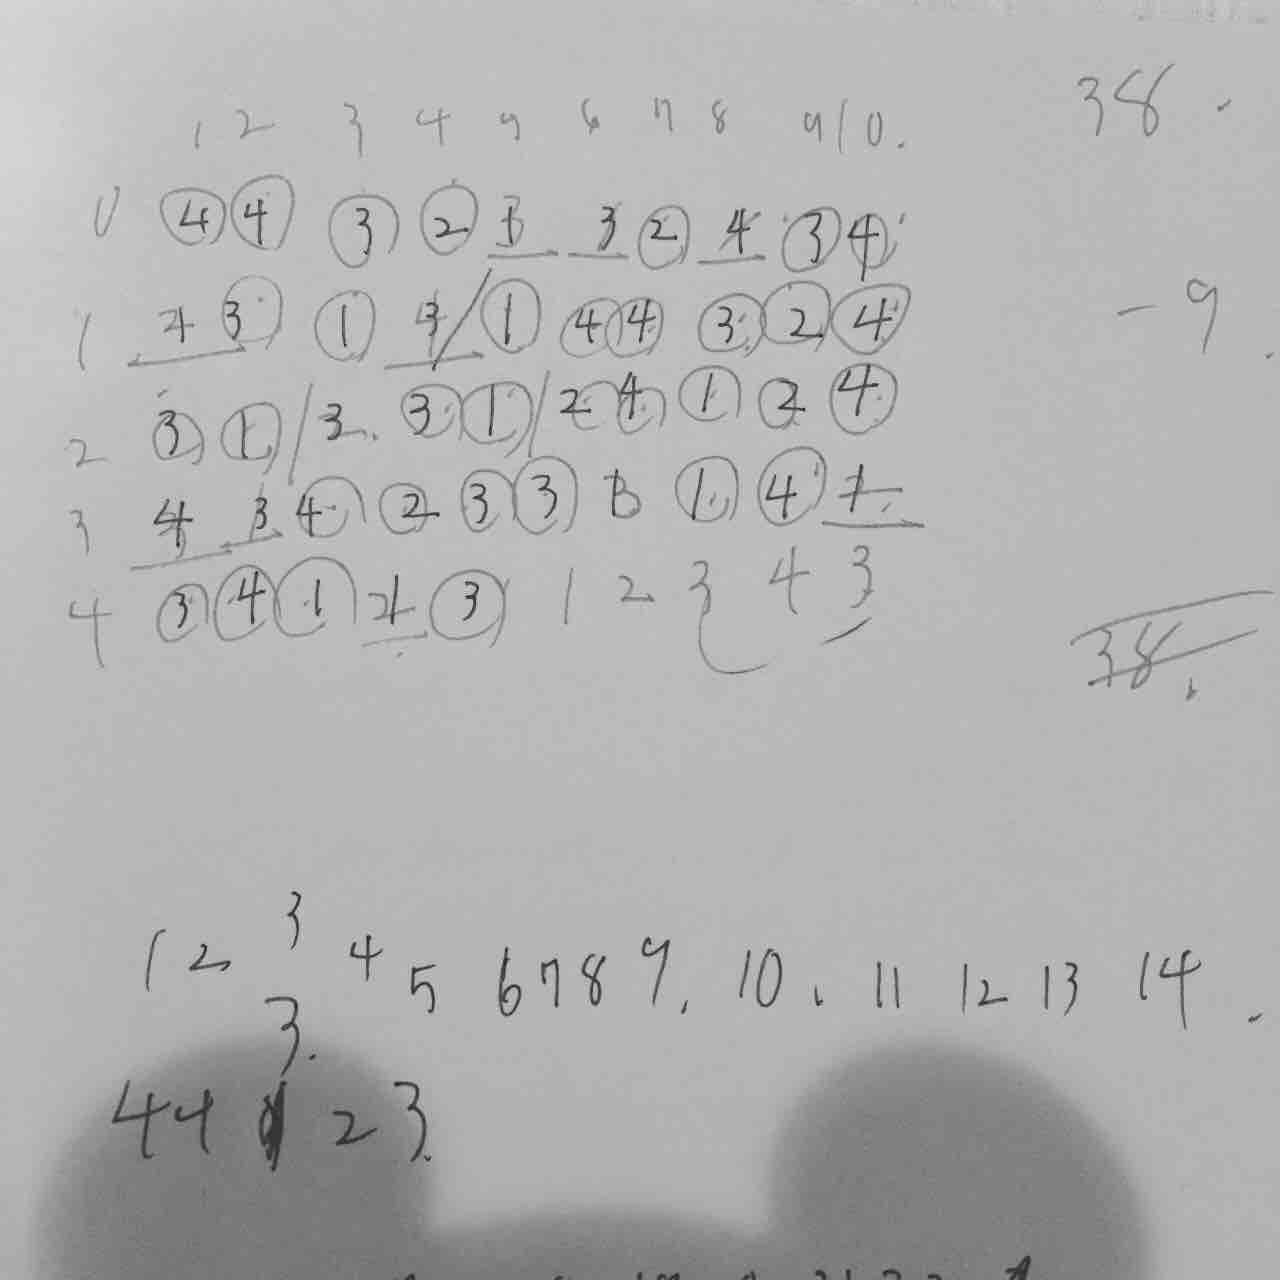 38.
1 2 3 4 5 6 7 8 9 10.
0 4 4 3 2 3 2 4 3 4
1 4 3 1 3 1 4 4 3 2 4
-9
2 3 1 3. 3 1 2 4 1 2 4
3 4 3 4 2 3 3 1 4 1
4 3 4 1 4 3 1 2 3 4 3
38.
1 2 3 4 5 6 7 8 9. 10. 11 12 13 14.
3.
4 4 1 2 3.